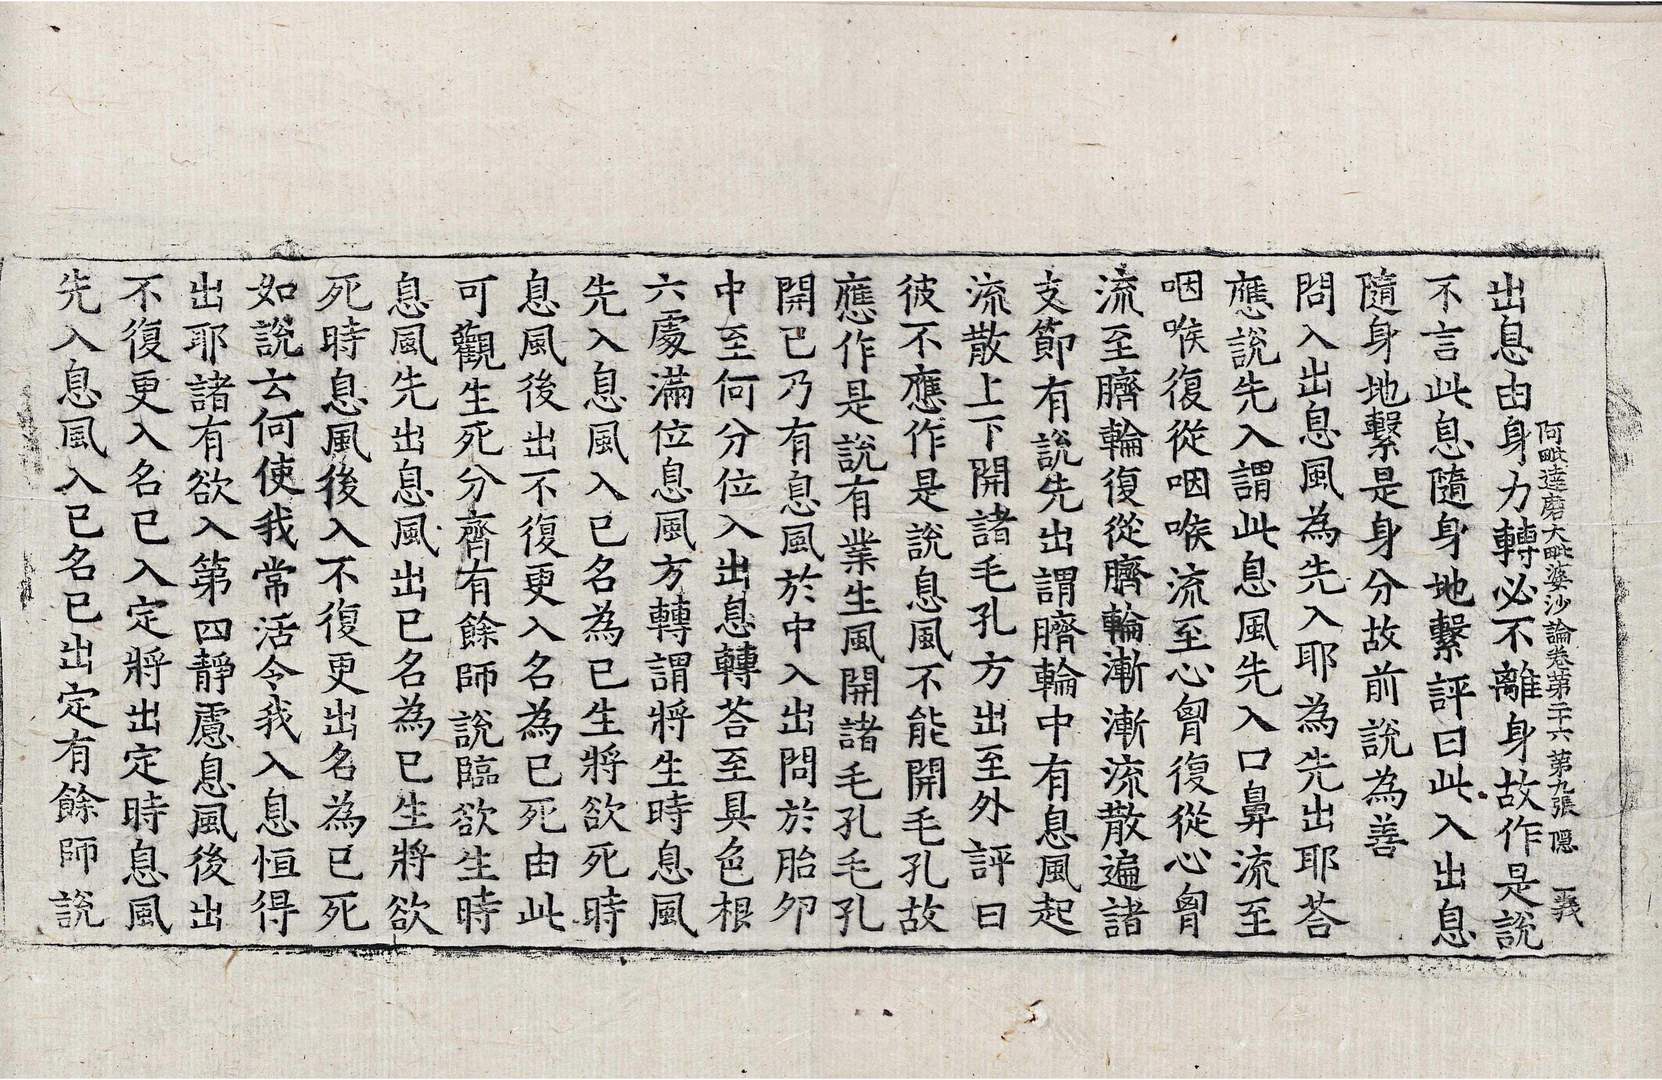 阿毗達磨大毗婆沙論卷第二十六 第九張 隱 義
出息由身力轉必不離身故作是說
不言此息隨身地繫評曰此入出息
隨身地繫是身分故前說為善
問入出息風為先入耶為先出耶荅
應說先入謂此息風先入口鼻流至
咽喉復從咽喉流至心胷復從心胷
流至臍輪復從臍輪漸漸流散遍諸
支節有說先出謂臍輪中有息風起
流散上下開諸毛孔方出至外評曰
彼不應作是說息風不能開毛孔故
應作是說有業生風開諸毛孔毛孔
開已乃有息風於中入出問於胎卵
中至何分位入出息轉荅至具色根
六處滿位息風方轉謂將生時息風
先入息風入已名為已生將欲死時
息風後出不復更入名為已死由此
可觀生死分齊有餘師說臨欲生時
息風先出息風出已名為已生將欲
死時息風後入不復更出名為已死
如說云何使我常活令我入息恒得
出耶諸有欲入第四靜慮息風後出
不復更入名已入定將出定時息風
先入息風入已名已出定有餘師說